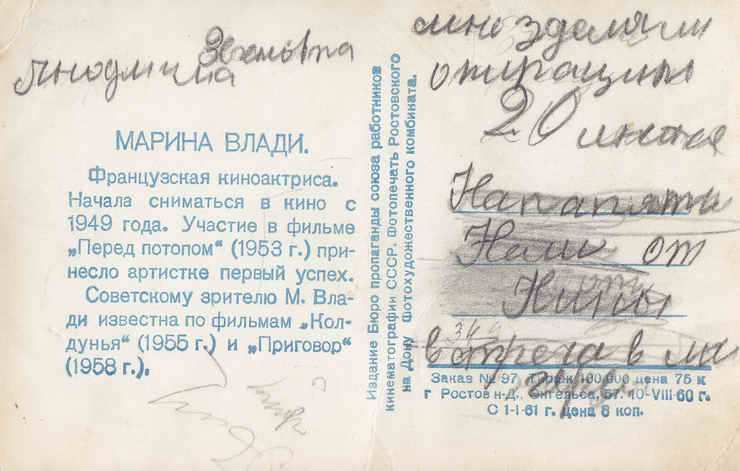 Людмила
МАРИНА ВЛАДИ.
Французская киноактриса.
Начала сниматься в кино с
1949 года. Участие в фильме
„Перед потопом“ (1953 г.) при-
несло артистке первый успех.
Советскому зрителю М. Вла-
ди известна по фильмам „Кол-
дунья“ (1955 г.) и „Приговор“
(1958 г.).
Издание Бюро пропаганды союза работников
кинематографии СССР. Фотопечать Ростовского
на Дону Фотохудожественного комбината.
мне зделали
операцию
20 июня
На память
от
Нины
встреча в
Заказ № 97 Тираж 100.000 цена 75 к
г Ростов н-Д., Энгельса, 57. 10-VIII-60 г.
С 1-I-61 г. цена 8 коп.